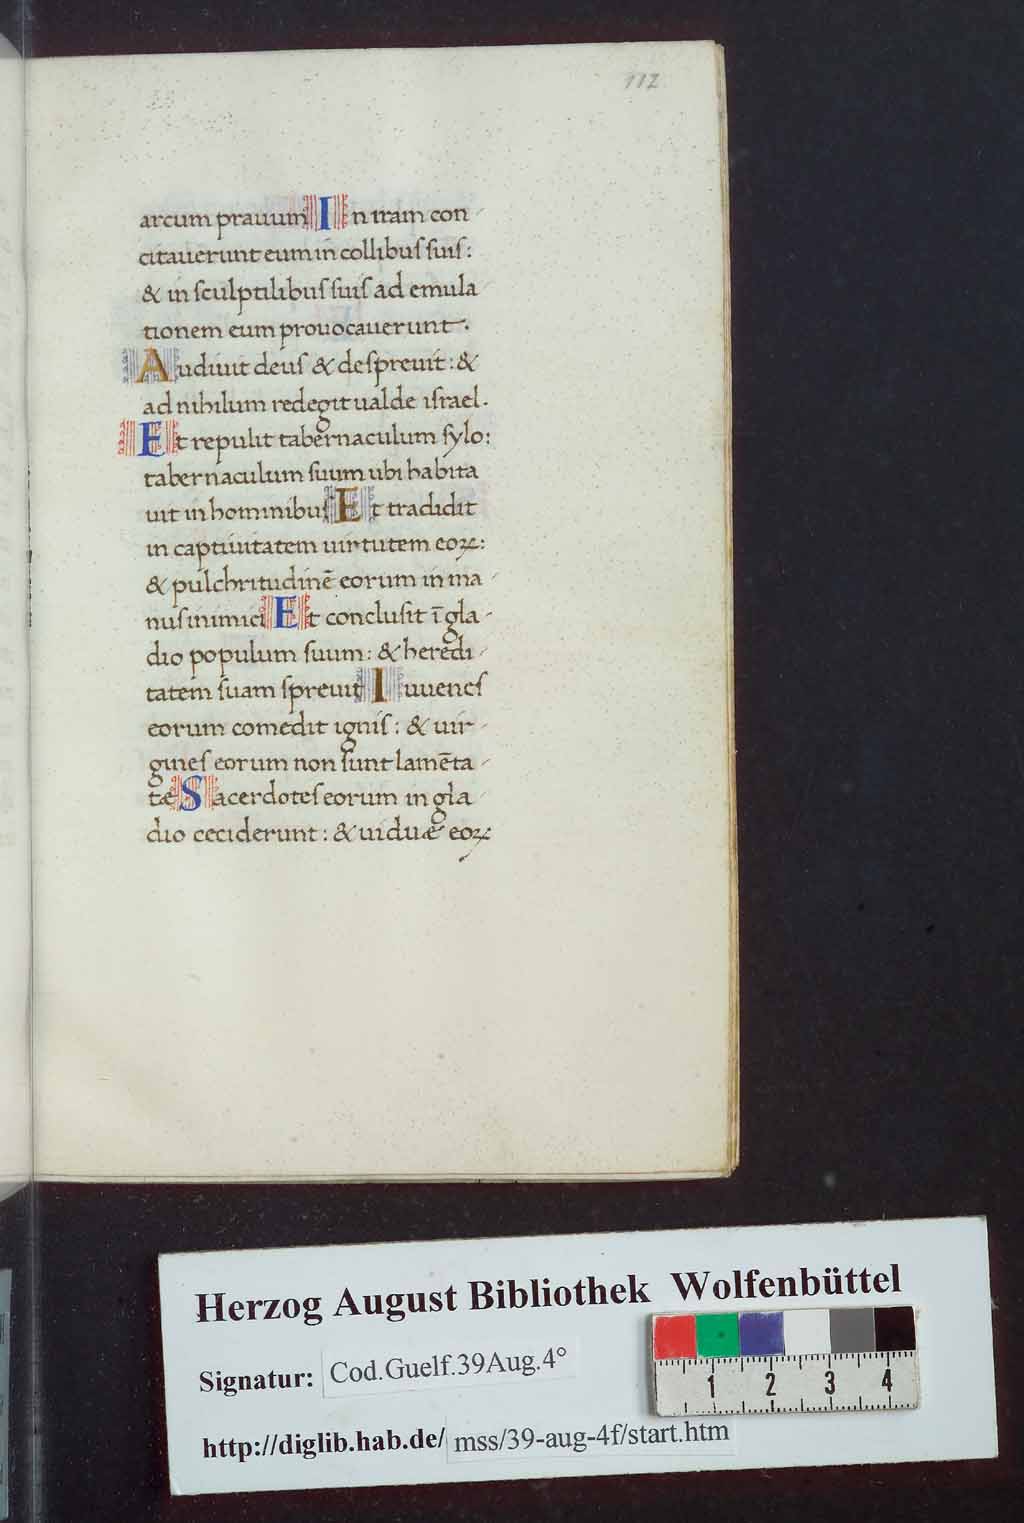 112
arcum prauum In iram con
citauerunt eum in collibus suis:
& in sculptilibus suis ad emula
tionem eum prouocauerunt.
Audiuit deus & despreuit: &
ad nihilum redegit ualde israel.
Et repulit tabernaculum sylo:
tabernaculum suum ubi habita
uit in hominibus Et tradidit
in captiuitatem uirtutem eoꝝ:
& pulchritudinē eorum in ma
nus inimici Et conclusit ī gla
dio populum suum: & heredi
tatem suam spreuit Iuuenes
eorum comedit ignis: & uir
gines eorum non sunt lamēta
tę Sacerdotes eorum in gla
dio ceciderunt: & uiduę eoꝝ
Herzog August Bibliothek Wolfenbüttel
Signatur: Cod.Guelf.39Aug.4°
1 2 3 4
http://diglib.hab.de/ mss/39-aug-4f/start.htm